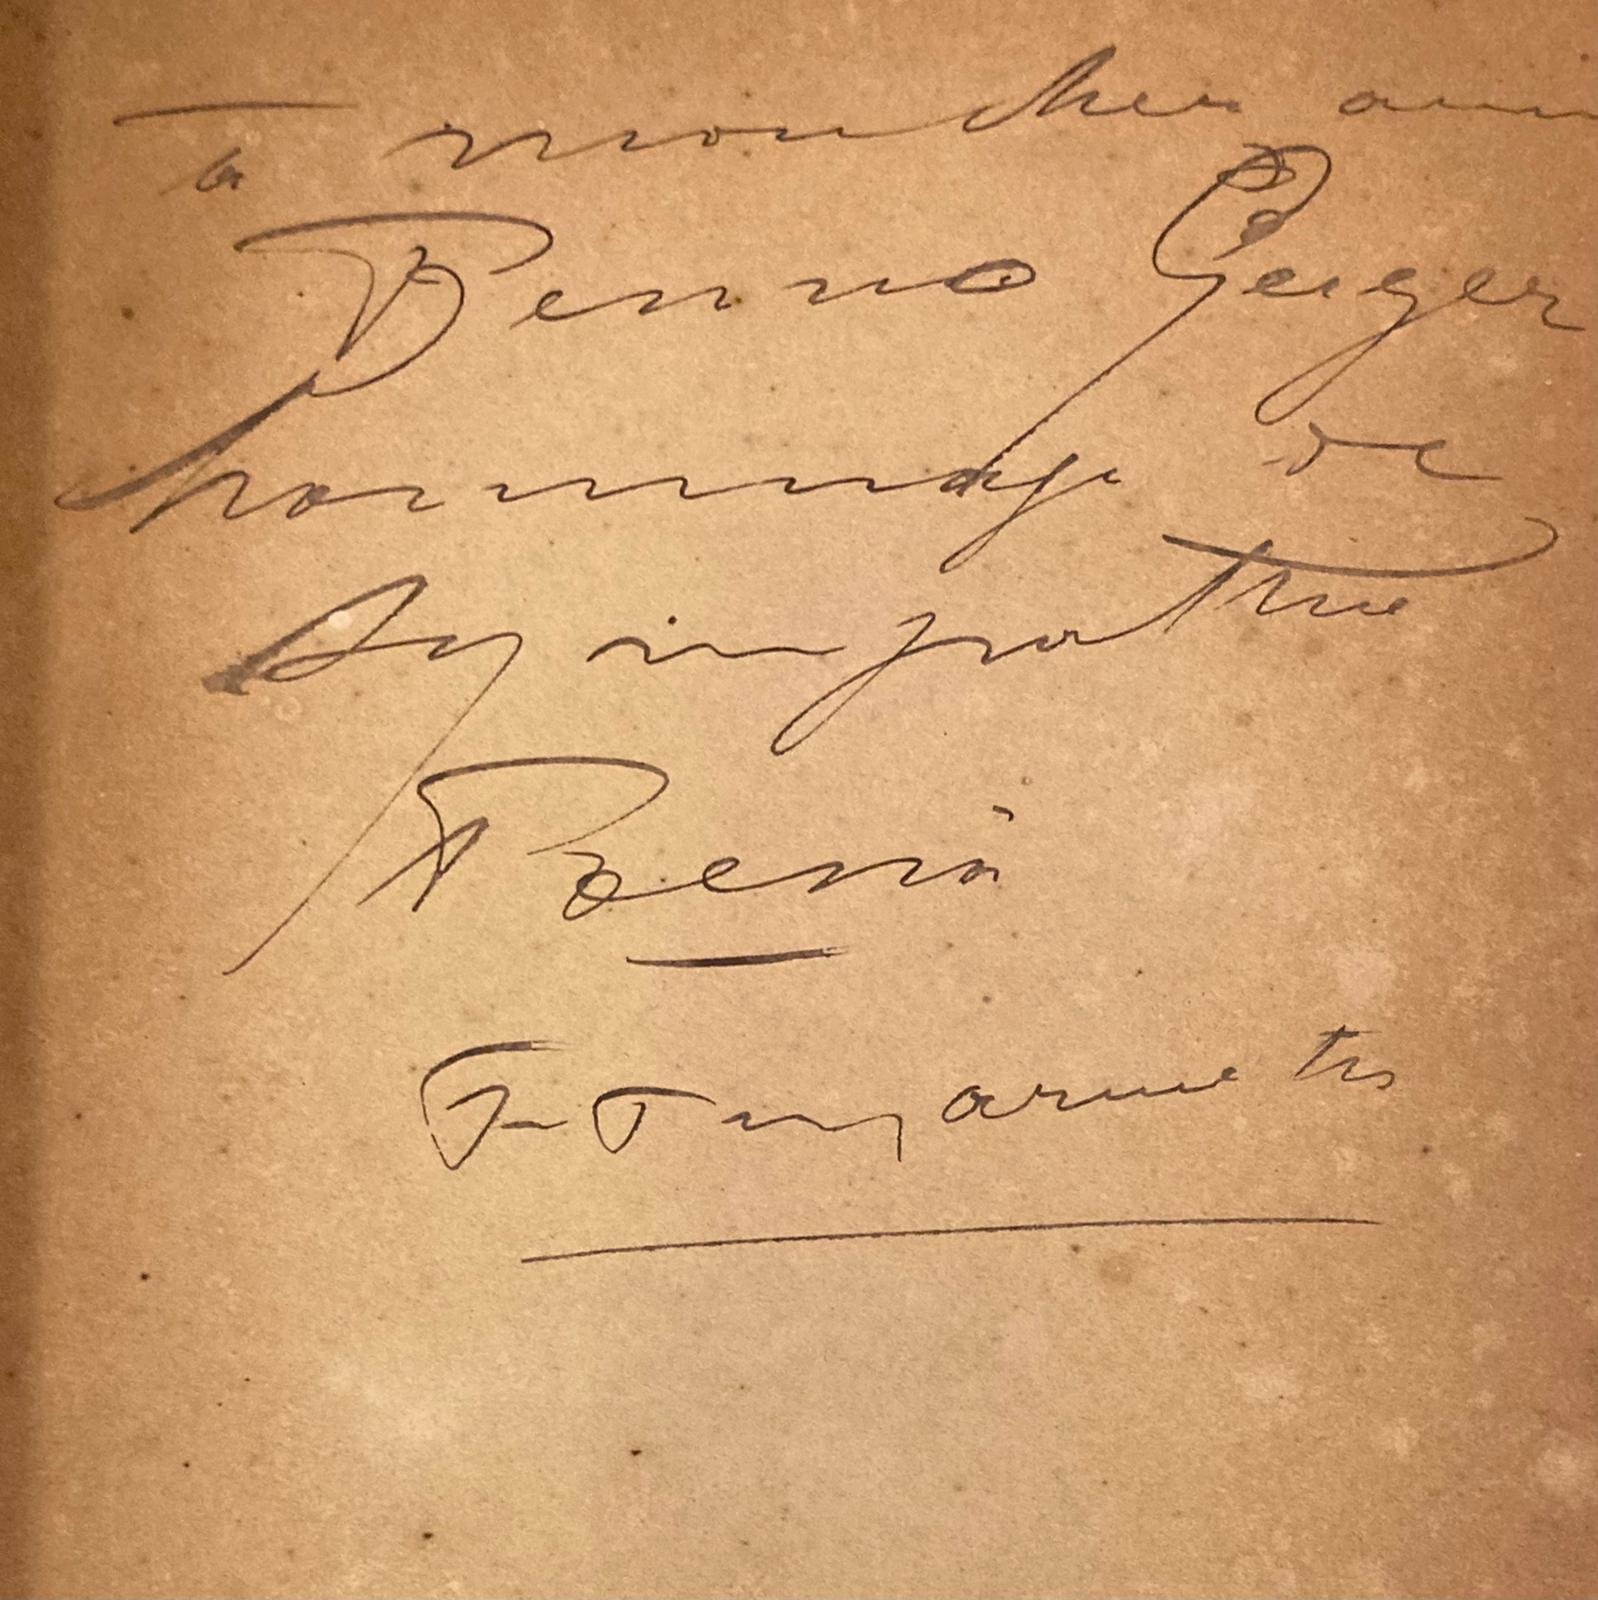 à mon cher ami
Benno Geiger
hommage de
sympathie
F. T. Marinetti